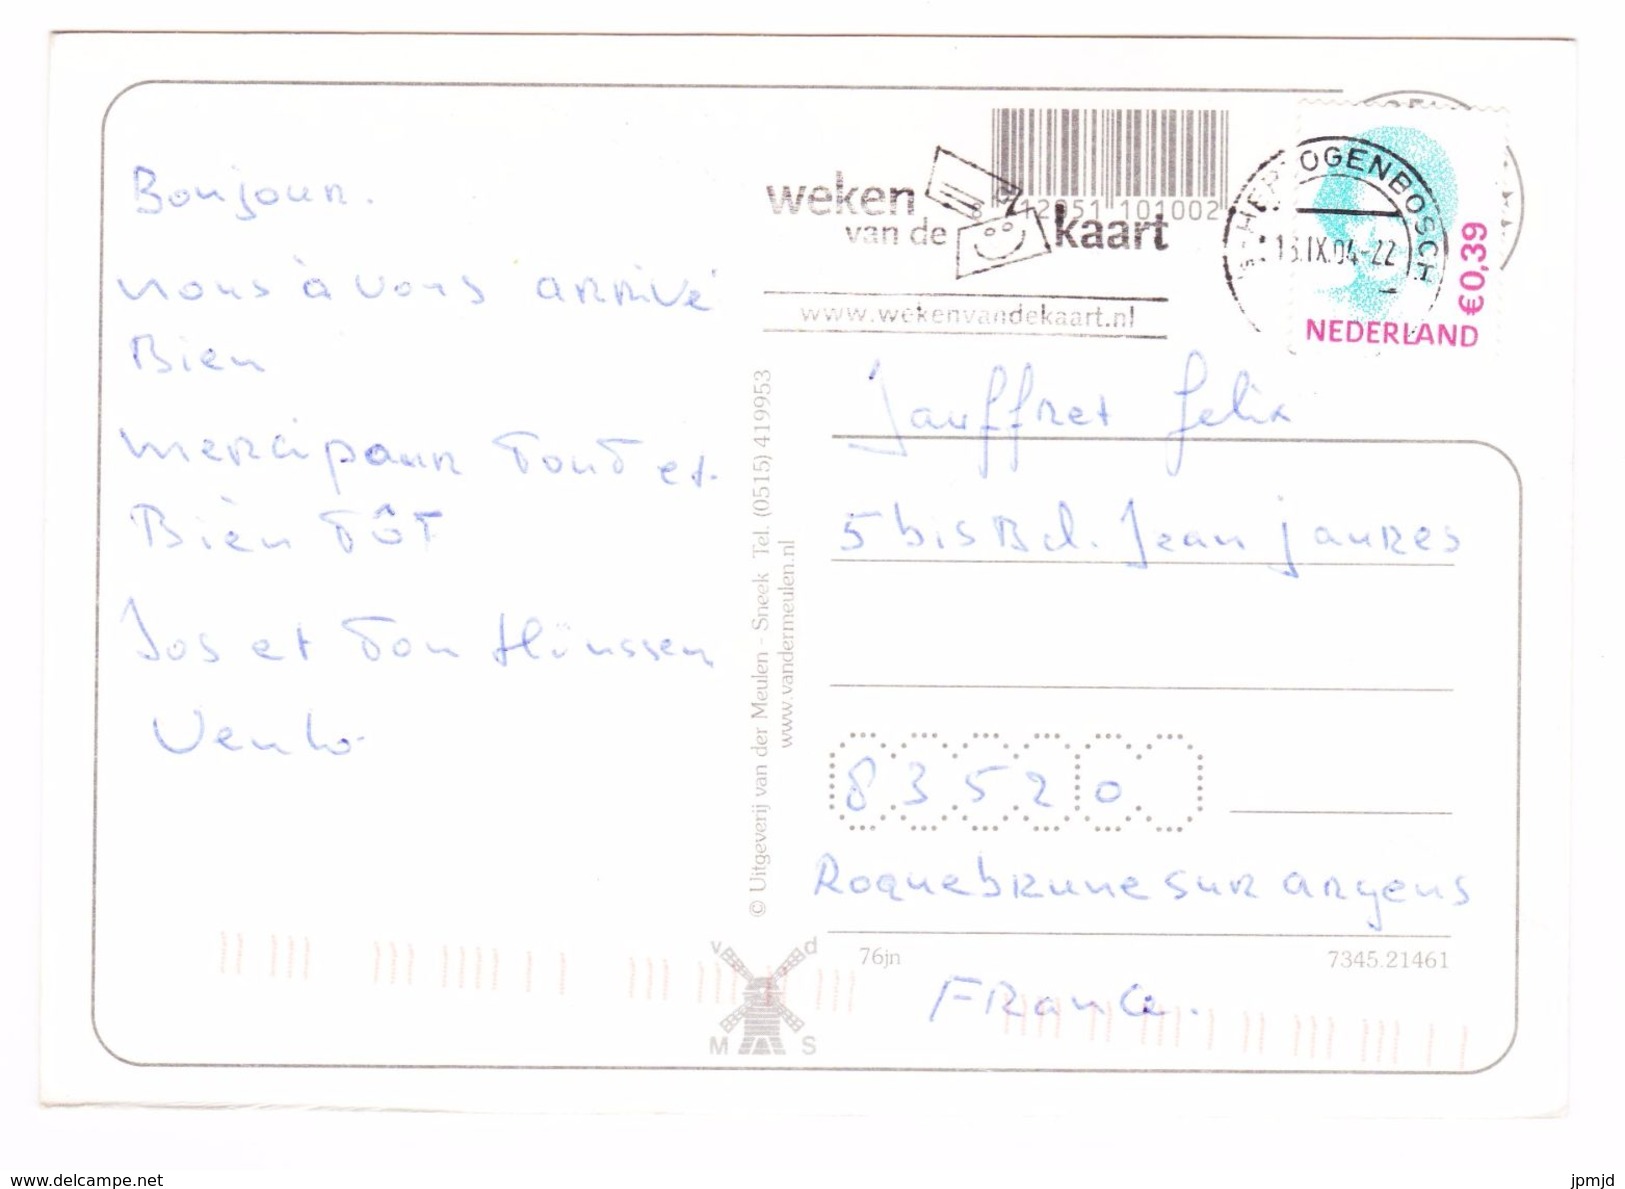 Bonjour.
nous à vous arrivé
Bien
merci pour tout et
Bièn tôt
Jos et Ton Hinssen
Venlo
weken
van de
kaart
www.wekenvandekaart.nl
8 712051 101002
HERTOGENBOSCH
13.IX.04-22
€0,39
NEDERLAND
© Uitgeverij van der Meulen - Sneek Tel. (0515) 419953
www.vandermeulen.nl
Jauffret Felix
5 bis Bd. Jean jaures
83520
Roquebrune sur argens
76jn
7345.21461
France.
v d
M S
www.delcampe.net
jpmjd